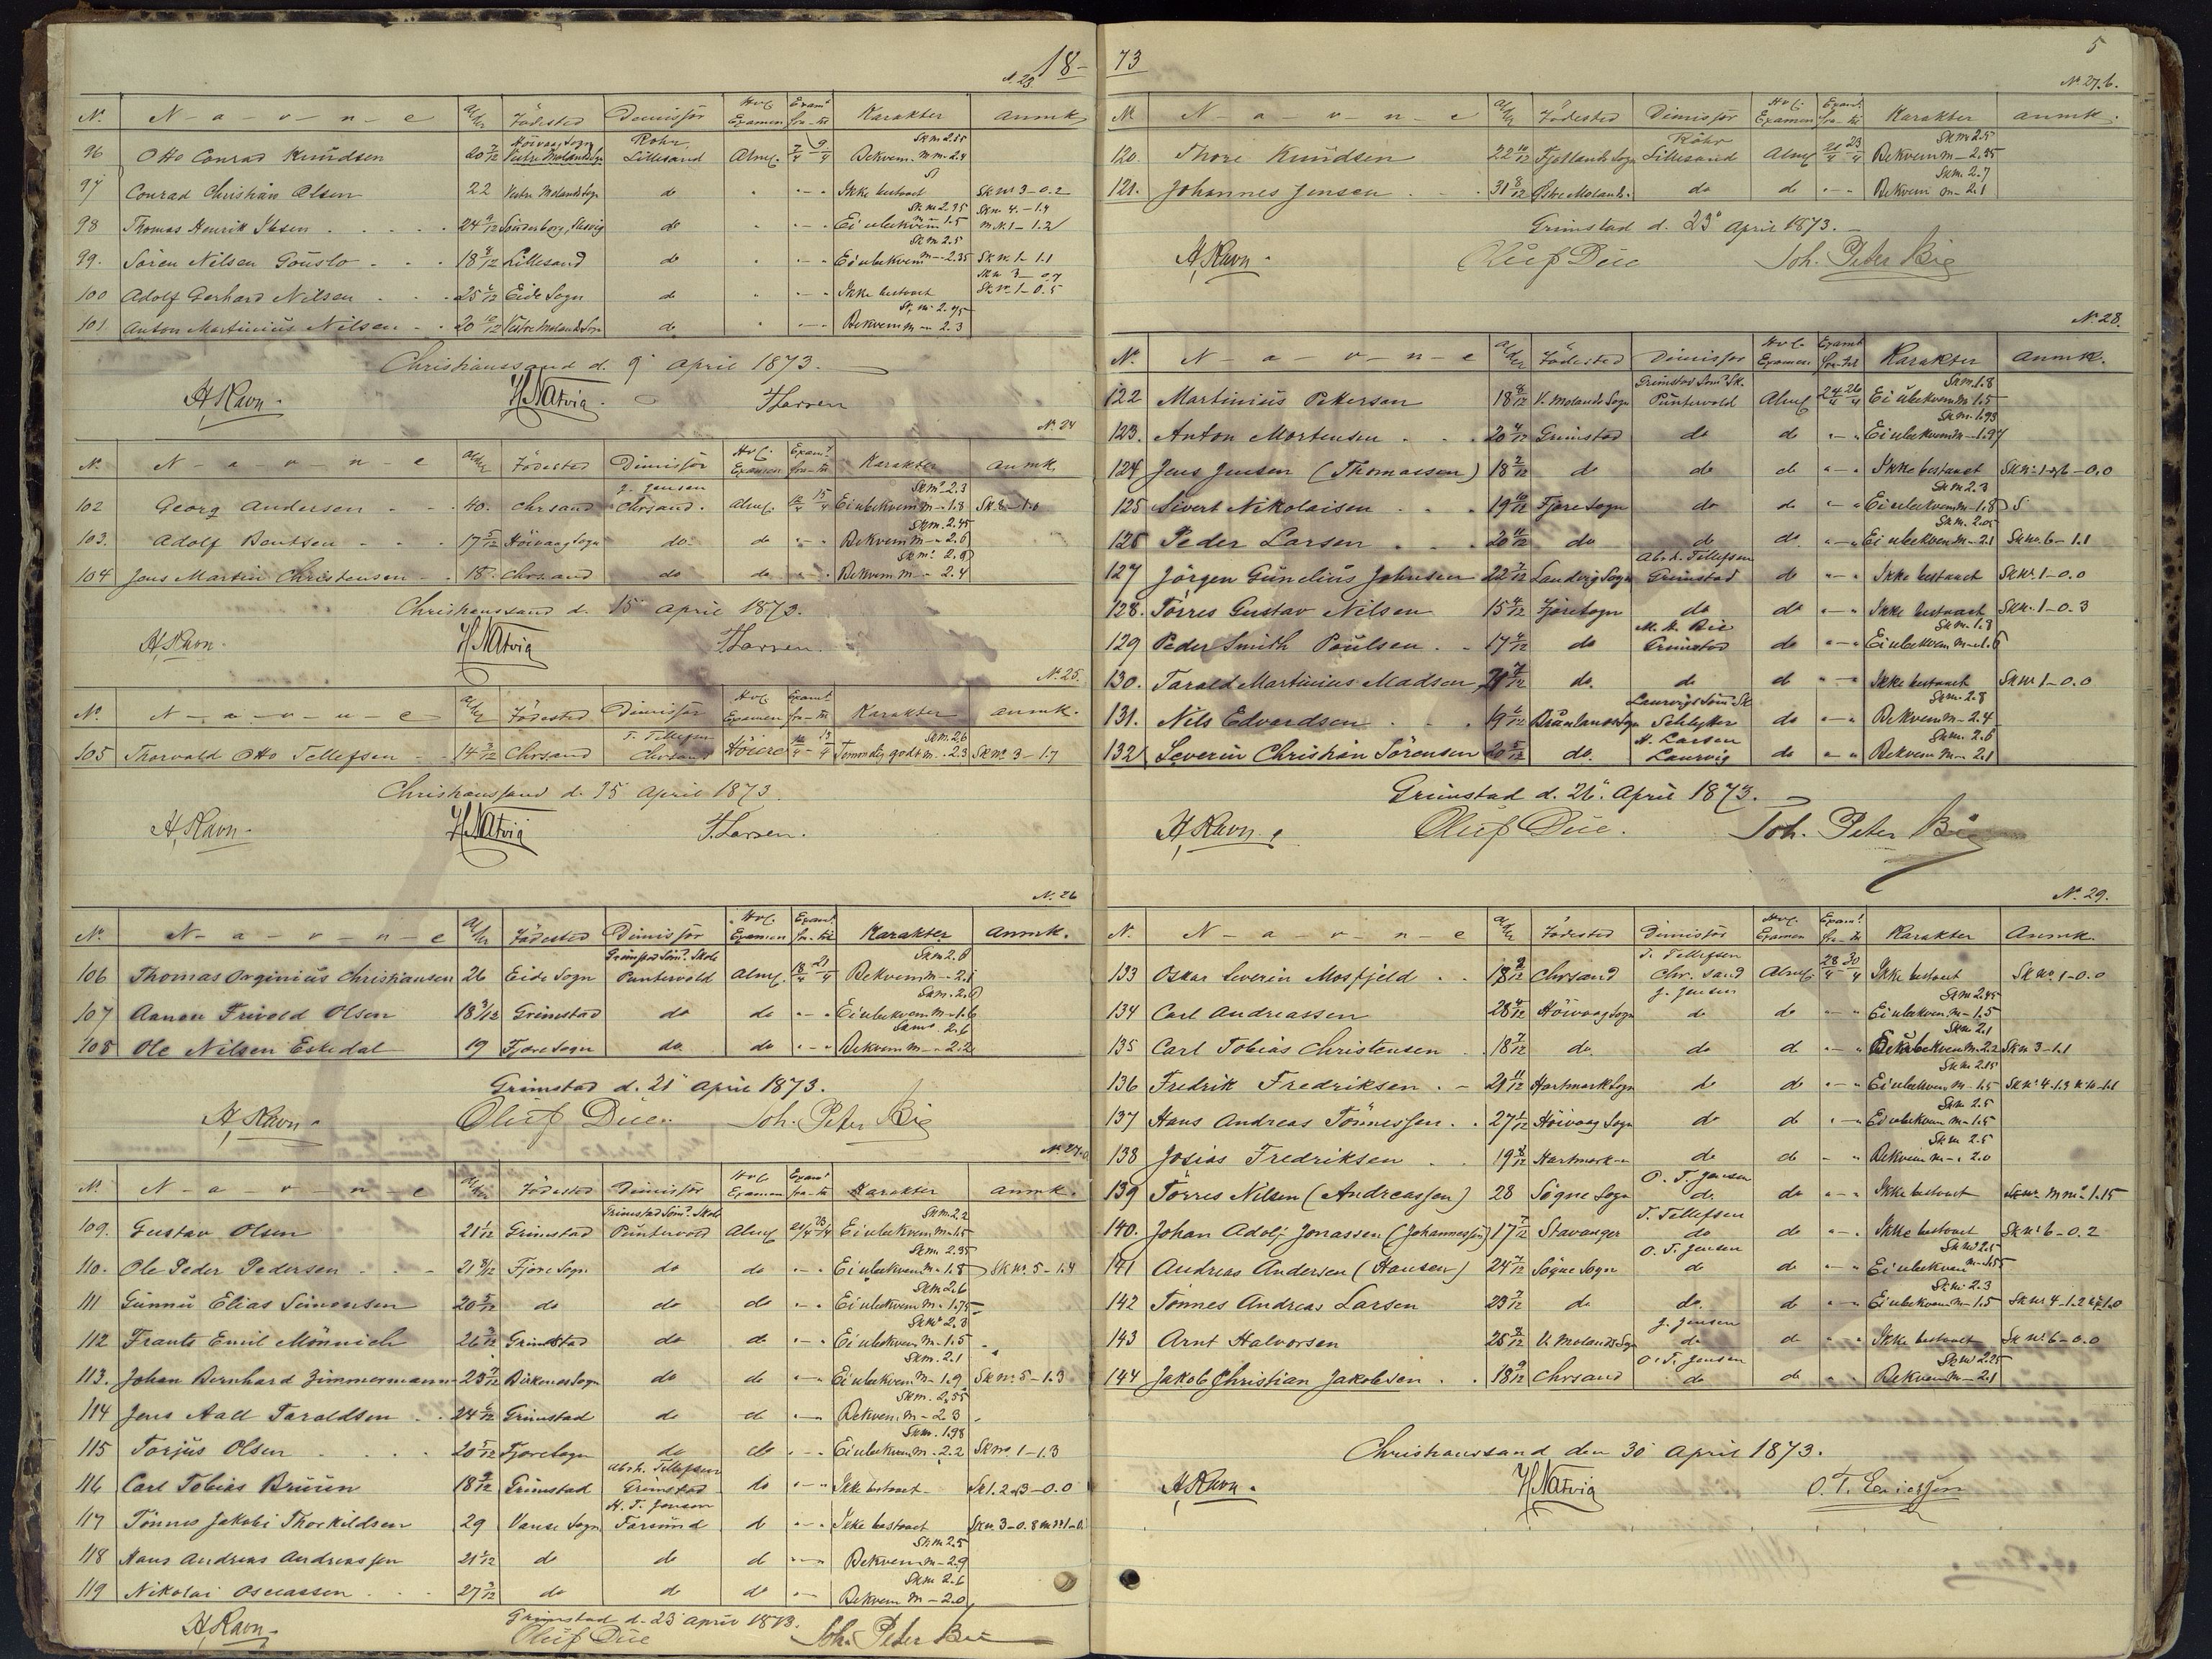 18-
No 23
No. N-a-v-n-e Alder Födested Dimissör Hvf. Examen Examt fra-til Karakter Anmk
96 Otto Conrad Knudsen 20 7/12 Höivaag Sogn Vestre Molands Sogn Rohr Lillesand Alm. 7/4 9/4 Skm 2.55 Bekvem. m- 2.4
97 Conrad Christian Olsen 22 Vestre Molands Sogn do " "-" Ikke bestaaet Sk No 3-0.2
98 Thomas Henrik Ibsen 24 9/12 Sönderborg, Slesvig do " "-" Skm 2.35 Ei ubekvem m 1.5 Sk No 4.-1.4 m.N.1-1.2
99. Sören Nilsen Gouslo 18 8/12 Lillesand do " "-" Skm 2.5 Ei ubekvem m- 2.35 Sk No 1- 1.1
100 Adolf Gerhard Nilsen 25 6/12 Eide Sogn do " "-" Ikke bestaaet Sk No 3-0.7 Sk No 1-0.5
101 Anton Martinius Nilsen 20 10/12 Vestre Molands Sogn do " "-" Skm 2.45 Bekvem m- 2.3
Christianssand d. 9 April 1873.
A. Ravn. H. Natvig T. Larsen
No 24
No. N-a-v-n-e Alder Födested Dimissör Hvf. Examen Examt fra-til Karakter Anmk
102 Georg Andersen 40. Chrsand J. Jensen Chrsand. Alm. 12/4 15/4 Skm 2.3 Ei ubekvem m- 1.8 Sk 8-1.0
103. Adolf Bentsen 17 5/12 Höivaag Sogn do. do "-" Skm. 2.45 Bekvem m- 2.6
104 Jens Martin Christensen 18. Chrsand do do "-" Skm. 2.8 Bekvem m- 2.4
Christianssand d. 15 April 1873.
A. Ravn. H. Natvig T. Larsen.
No 25.
No. N-a-v-n-e Alder Födested Dimissör Hvf. Examen Examt fra-til Karakter Anmk.
105 Thorvald Otto Tellefsen 14 3/12 Chrsand T. Tellefsen Chrsand Höiere 12/4 15/4 Skm. 2.6 Temmelig godt m. 2.3 Sk No 3-1.7
Christianssand d. 15 April 1873.
A. Ravn. H. Natvig T. Larsen.
No. 26
No. N-a-v-n-e Alder Födested Dimissör Hvf. Examen Examt fra-til Karakter Anmk.
106 Thomas Orginius Christiansen 26 Eide Sogn Grimstad Söm. Skole Puntervold Alm. 18/4 21/4 Skm 2.6 Bekvem m- 2.5
107 Aanon Trivold Olsen 18 3/12 Grimstad do do "-" Skm. 2.0 Ei ubekvem m- 1.6
108 Ole Nilsen Eskedal 19 Fjære Sogn do do "-" Skm. 2.6 Bekvem m- 2.2
Grimstad d. 21 April 1873.
A. Ravn. Oluf Due. Joh. Peter Bie
No 27.a
No. N-a-v-n-e Alder Födested Dimissör Hvf Examen Examt fra-til Karakter Anmk.
109. Gustav Olsen 21 1/12 Grimstad Grimstad Söm. Skole Puntervold Alm 21/4 23/4 Skm 2.2 Ei ubekvem m- 1.5
110. Ole Peder Pedersen 21 8/12 Fjære Sogn do do "-" Skm. 2.35 Ei ubekvem m- 1.8 Sk No. 5-1.4
111 Gunnu Elias Simonsen 20 5/12 do do do "-" Skm 2.6 Ei ubekvem m- 1.75
112 Frants Emil Mönnich 26 3/12 Grimstad do do "-" Skm 2.3 Ei ubekvem m- 1.5
113. Johan Bernhard Zimmermann 23 7/12 Birkenes Sogn do do "-" Skm. 2.1 Ei ubekvem m- 1.9 Sk No 5-1.3
114 Jens Aall Taraldsen 24 6/12 Grimstad do do "-" Skm. 2.55 Bekvem m- 2.3
115 Torjus Olsen 20 5/12 Fjære Sogn do do "-" Skm. 1.98 Ei ubekvem m- 2.2 Sk No 1-1.3
116 Carl Tobias Bruun 18 9/12 Grimstad Abrh. Tellefsen Grimstad do "-" Ikke bestaaet Sk 1.2 og 3-0.0
117 Tönnes Jakobi Thorkildsen 29 Vanse Sogn H. T. Jensen Farsund do "-" Ikke bestaaet Sk No 3-0.8
118 Hans Andreas Andreassen 21 2/12 do do do "-" Skm 2.5 Bekvem m- 2.9
119 Nikolai Oseiassen 27 3/12 do do do "-" Skm 2.6 Bekvem m- 2.0
Grimstad d. 23 April 1873.
A. Ravn. Oluf Due Joh. Peter Bie
73
5
No 27.b.
No N-a-v-n-e Alder Födested Dimissör Hvf. Examen Examt fra-til Karakter Anmk.
120. Thore Knudsen 22 10/12 Fjotlands Sogn Röhr Lillesand Alm 21/4 23/4 Skm 2.5 Bekvem m- 2.35
121. Johannes Jensen 31 8/12 Östre Molands. do do "-" Skm. 2.7 Bekvem m- 2.1
Grimstad d. 23 April 1873.
A. Ravn. Oluf Due Joh. Peter Bie
No. 28.
No. N-a-v-n-e Alder Födested Dimissör Hvf. Examen Examt fra-til Karakter Anmk.
122 Martinius Pettersen 18 8/12 V. Molands Sogn Grimstad Söm. Sk. Puntervold Alm 24/4 26/4 Skm 1.8 Ei ubekvem m 1.5
123. Anton Mortensen 20 4/12 Grimstad do do "-" Skm. 1.93 Ei ubekvem m- 1.97
124 Jens Jensen (Thomassen) 18 2/12 do do do "-" Ikke bestaaet Sk No 1 og 6-0.0
125 Sivert Nikolaisen 19 10/12 Fjære Sogn do do "-" Skm 2.3 Ei ubekvem m- 1.8
126 Peder Larsen 20 11/12 do do do. "-" Skm. 2.05 Ei ubekvem m- 2.1 Sk No. 6-1.1
127 Jörgen Gunelius Johnsen 22 7/12 Landvig Sogn Abr. h. Tellefsen Grimstad do "-" Ikke bestaaet Sk No. 1-0.0
128. Törres Gustav Nilsen 15 4/12 Fjære Sogn do do "-" Ikke bestaaet Sk No. 1-0.3
129 Peder Smith Poulsen 17 4/12 do M. A. Bie Grimstad do "-" Skm. 1.8 Ei ubekvem m- 1.6
130. Tarald Martinius Madsen 21 7/12 do. do do "-" Ikke bestaaet Sk No 1-0.0
131. Nils Edvardsen 19 6/12 Brunlanes Sogn Laurvigs Söm Sk Schlytter do "-" Skm. 2.8 Bekvem m- 2.4
132 Severin Christian Sörensen 20 5/12 do. H. Larsen Laurvig do "-" Skm. 2.6 Bekvem m- 2.1
Grimstad d. 26. April 1873.
A. Ravn. Oluf Due. Joh. Peter Bie
No. 29.
No. N-a-v-n-e Alder Födested Dimissör Hvf. Examen Examt fra-til Karakter Anmk.
133 Oskar Severin Mosfjeld 18 9/12 Chrsand T. Tellefsen Chr. sand Alm 28/4 30/4 Ikke bestaaet Sk No. 1-0.0
134 Carl Andreassen 28 4/12 Höivaag Sogn J. Jensen do do "-" Skm 2.45 Ei ubekvem m- 1.5
135 Carl Tobias Christensen 18 7/12 do. do do "-" Skm 2.1 Ei ubekvem m- 2.2 Sk No 3-1.1
136 Fredrik Fredriksen 21 11/12 Hartmark Sogn do do "-" Skm 2.15 Ei ubekvem m- 1.5 Sk No 4-1.3
137 Hans Andreas Tönnessen 27 1/12 Höivaag Sogn do do "-" Skm 2.5 Ei ubekvem m- 1.5
138 Josias Fredriksen 19 8/12 Hartmark do do "-" Skm 2.5 Bekvem m- 2.0
139 Törres Nilsen (Andreassen) 28 Sögne Sogn O. T. Jensen do. do "-" Ikke bestaaet m No 1.15
140. Johan Adolf Jonassen (Johannessen) 17 7/12 Stavanger T. Tellefsen do do "-" Ikke bestaaet Sk No 6-0.2
141 Andreas Andersen (Hansen) 24 7/12 Sögne Sogn O. T. Jensen do do "-" Skm 2.5 Ei ubekvem m- 1.55
142 Tönnes Andreas Larsen 23 7/12 do do. do "-" Skm 2.3 Ei ubekvem m- 1.5 Sk No 4-1.2
143 Arnt Halvorsen 25 9/12 V. Molands Sogn J. Jensen do do "-" Ikke bestaaet Sk No 6-0.0
144 Jakob Christian Jakobsen 18 9/12 Chrsand O. T. Jensen do do "-" Skm 2.25 Bekvem m- 2.1
Christianssand den 30 April 1873.
A. Ravn. H. Natvig O. T. Ericssen